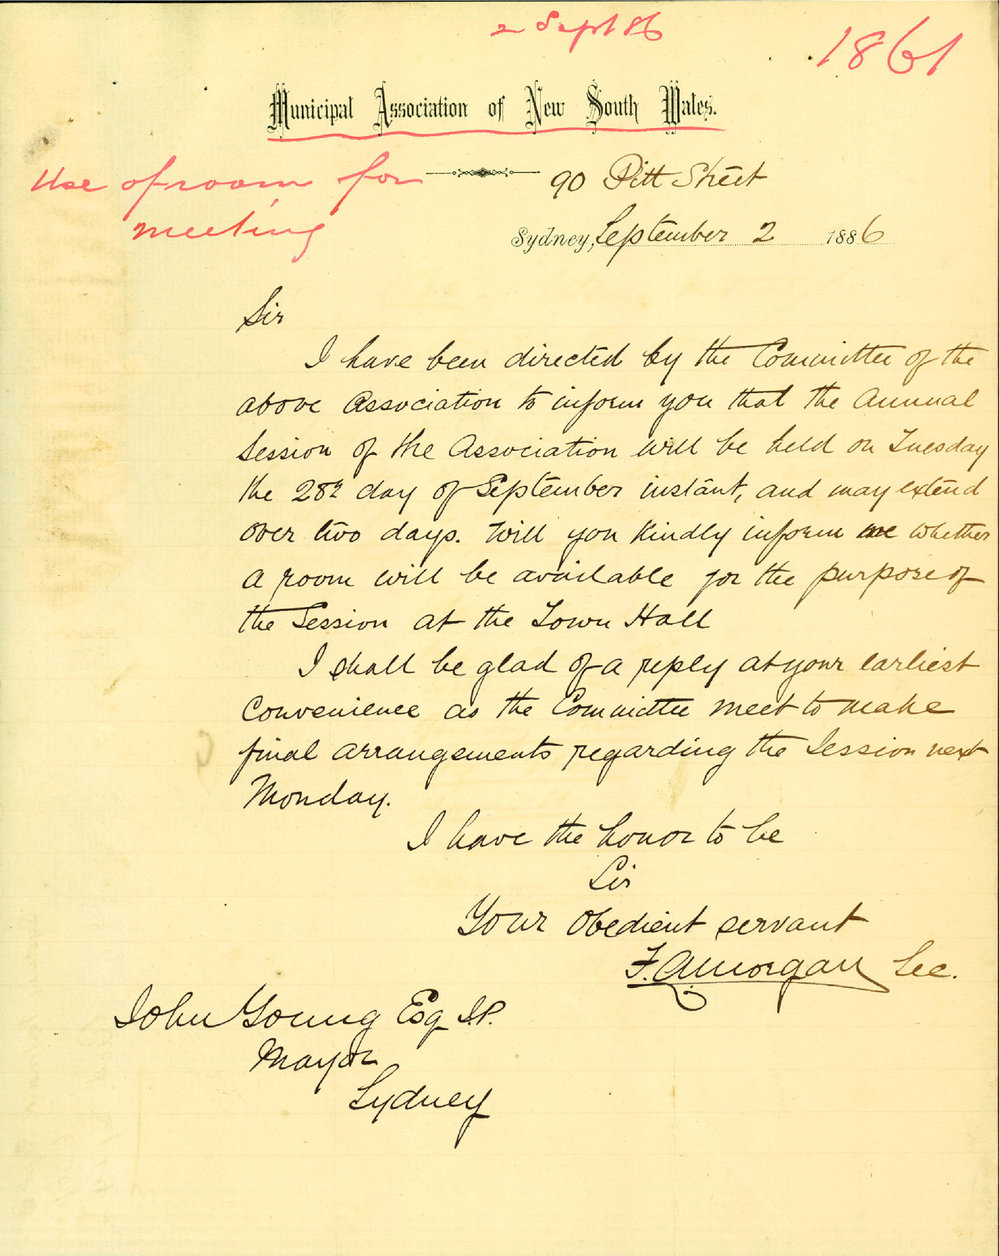 2 Sept 86
1861
Municipal Association of New South Wales.
Use of room for
meeting
90 Pitt Street
Sydney, September 2 1886
Sir
I have been directed by the Committee of the
above Association to inform you that the Annual
Session of the Association will be held on Tuesday
the 28th day of September instant, and may extend
over two days. Will you kindly inform me whether
a room will be available for the purpose of
the Session at the Town Hall
I shall be glad of a reply at your earliest
convenience as the Committee meet to make
final arrangements regarding the Session next
Monday.
I have the honor to be
Sir
Your obedient servant
F. A. Morgan Sec.
John Young Esq J.P.
Mayor
Sydney